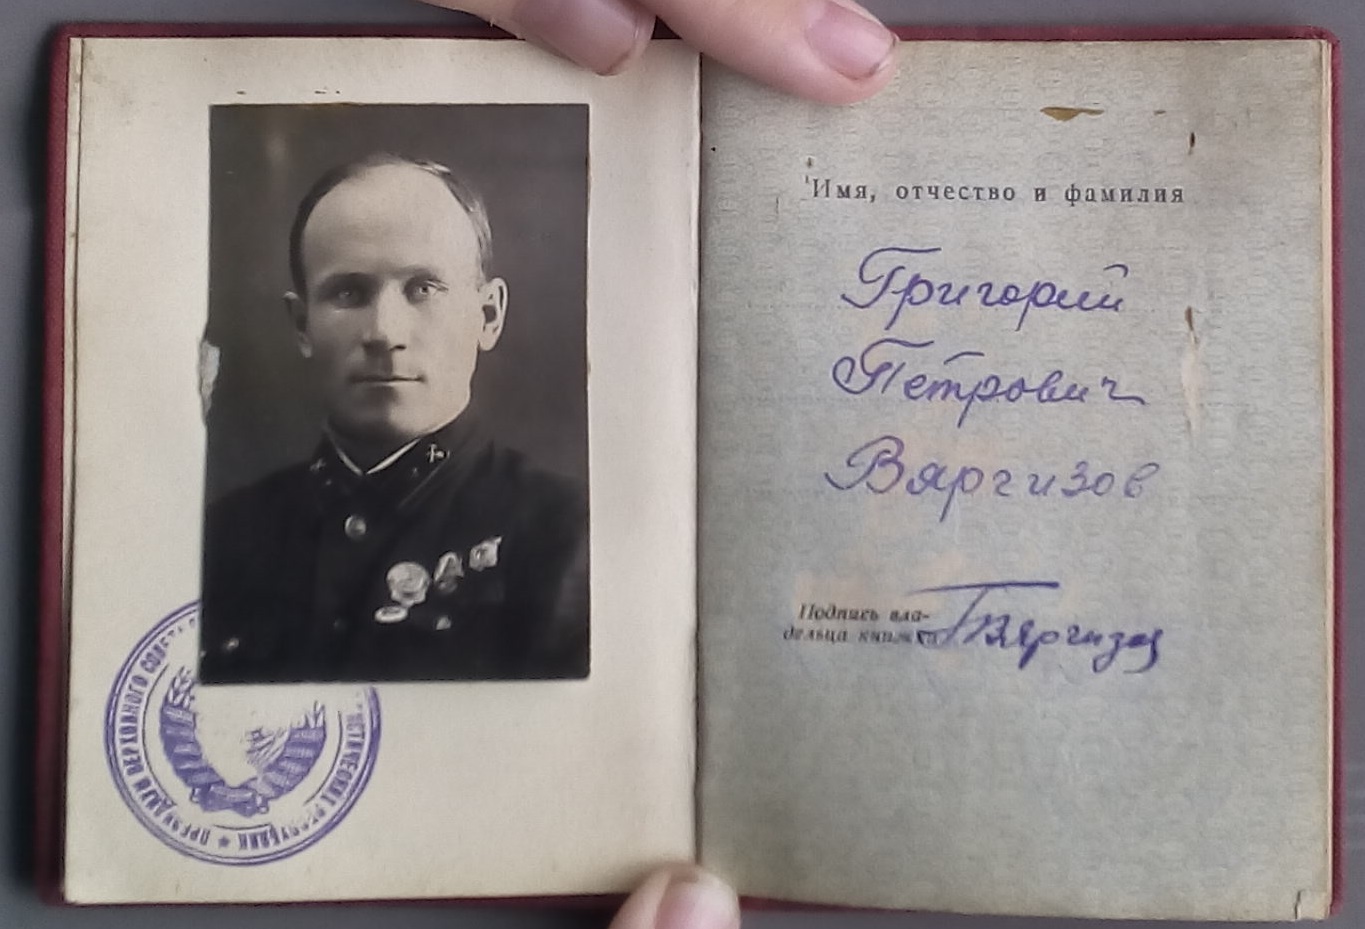 ПРЕЗИДИУМ ВЕРХОВНОГО
РЕСПУБЛИК
Имя, отчество и фамилия
Григорий
Петрович
Вяргизов
Подпись вла-
дельца книжки